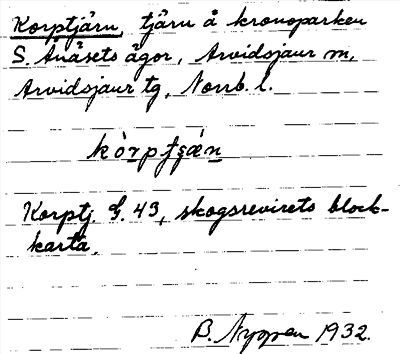 Korptjärn, tjärn å kronoparken
S. Anåsets ägor, Arvidsjaur sn,
Arvidsjaur tg, Norrb. l.
kòrptʂæ̀n
Korptj. G. 43, skogsrevirets block-
karta.
B. Nyppen 1932.